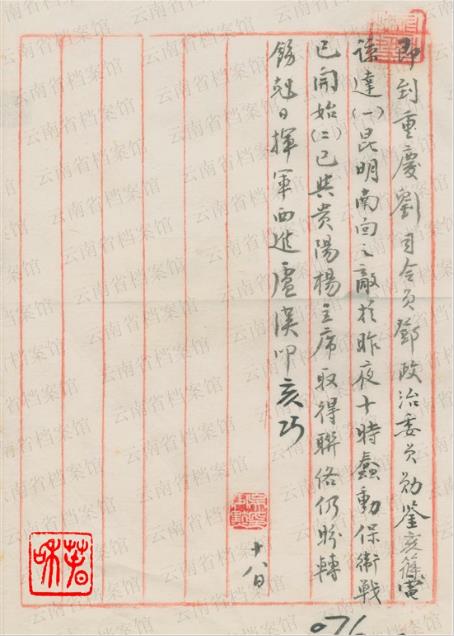 即到重慶劉司令员鄧政治委员勋鉴亥篠電
諒達(一)昆明南向之敵於昨夜十時蠢動保衛戰
已開始(二)已與貴陽楊主席取得聯络仍盼轉
飭尅日揮軍西進盧漢叩亥巧
十八日
076
云南省档案馆